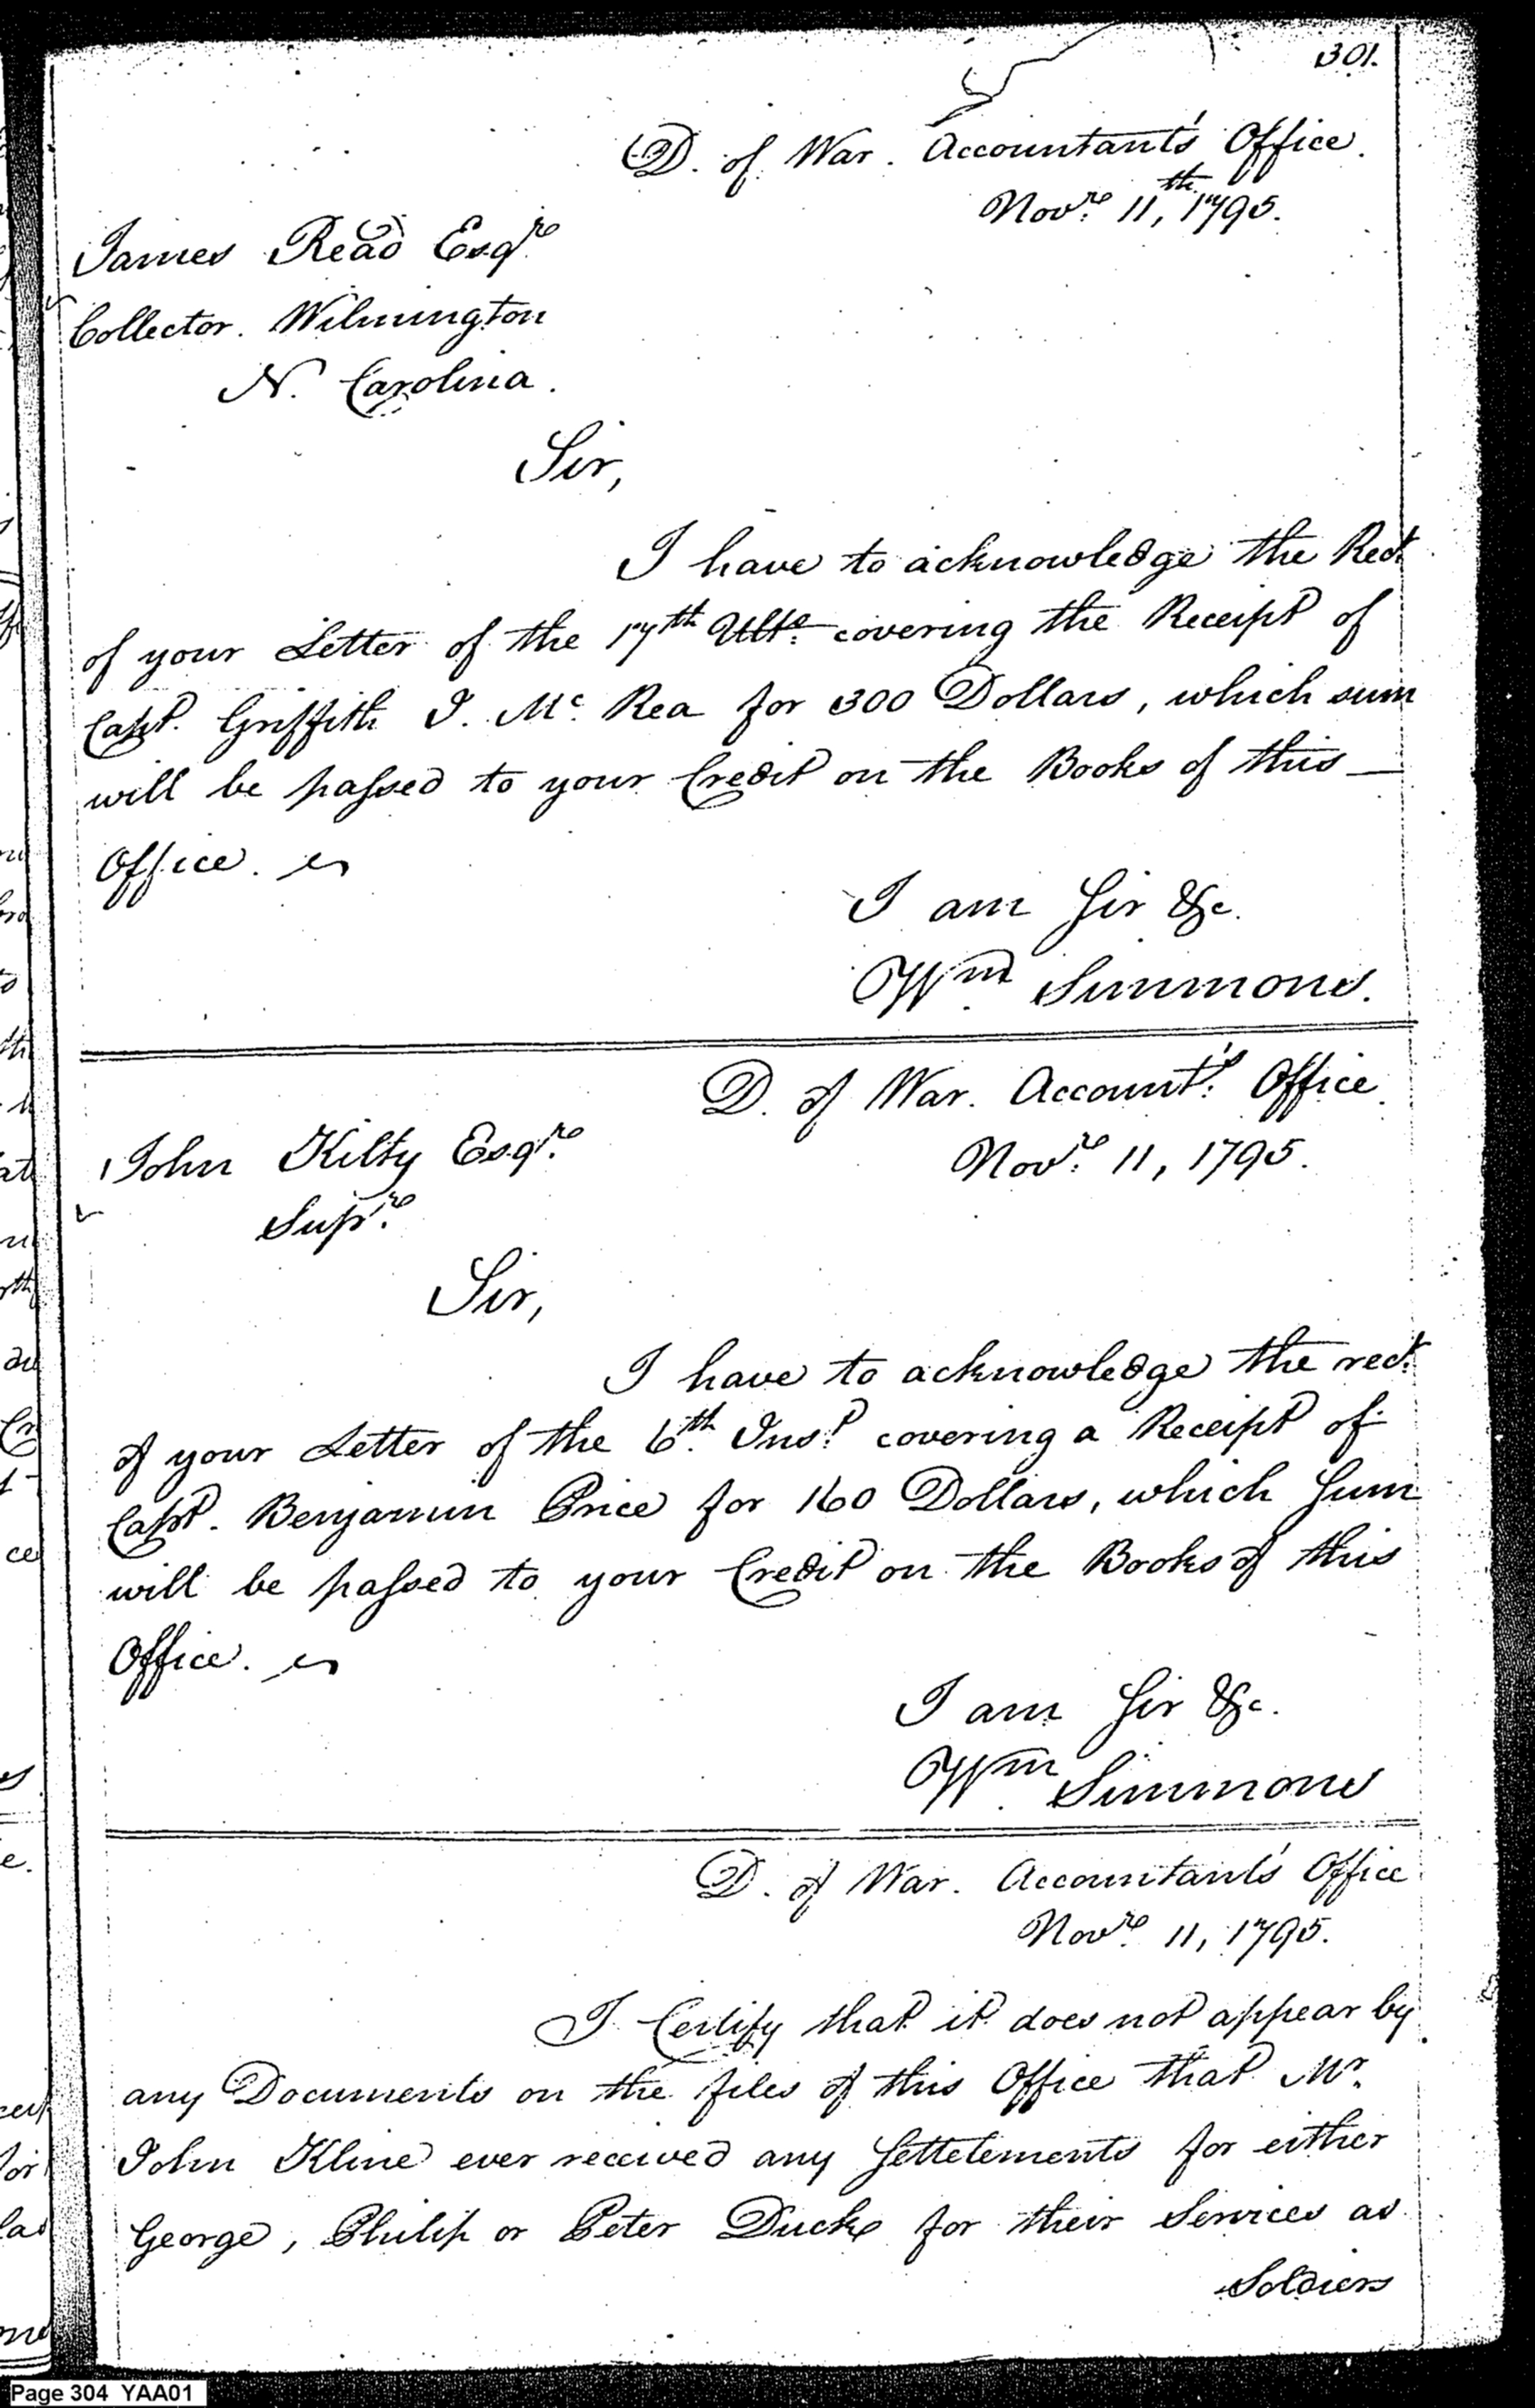 301.
D. of War. Accountant's Office.
Novre 11th, 1795.
James Read Esqre
Collector. Wilmington
N. Carolina.
Sir,
I have to acknowledge the Rect
of your Letter of the 17th Ulto. covering the Receipt of
Capt. Griffith J. Mc Rea for 300 Dollars, which sum
will be passed to your Credit on the Books of this
Office.
I am Sir &c.
Wm Simmons.
D. of War. Account's Office
Novre 11, 1795.
John Kilty Esqre
Supre
Sir,
I have to acknowledge the rect.
of your Letter of the 6th. Inst. covering a Receipt of
Capt. Benjamin Price for 160 Dollars, which Sum
will be passed to your Credit on the Books of this
Office.
I am Sir &c.
Wm Simmons
D. of War. Accountant's Office
Novre 11, 1795.
I Certify that it does not appear by
any Documents on the files of this Office that Mr.
John Kline ever received any Settelements for either
George, Philip or Peter Duck for their Services as
Soldiers
Page 304 YAA01